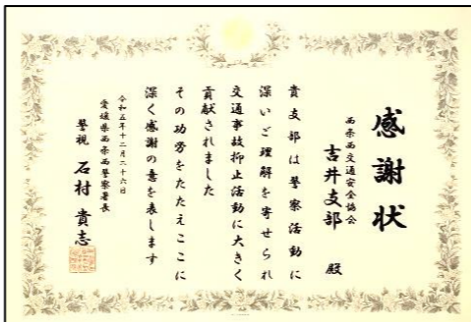 感謝状
西条西交通安全協会
吉井支部 殿
貴支部は警察活動に
深いご理解を寄せられ
交通事故抑止活動に大きく
貢献されました
その功労をたたえここに
深く感謝の意を表します
令和五年十二月二十六日
愛媛県西条西警察署長
警視 石村貴志